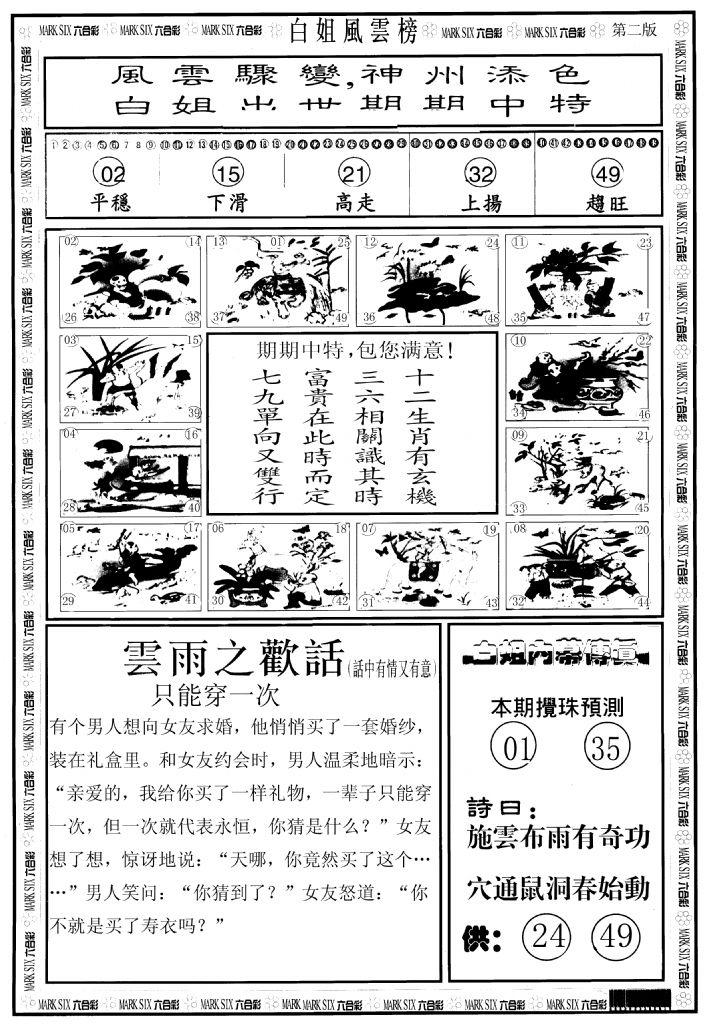 MARK SIX 六合彩 MARK SIX 六合彩 MARK SIX 六合彩 白姐風雲榜 MARK SIX 六合彩 MARK SIX 六合彩 第二版
風雲驟變,神州添色
白姐出世期期中特
02 15 21 32 49
平穩 下滑 高走 上揚 趨旺
02 14 13 01 25 12 24 11 23
26 38 37 49 36 48 35 47
03 15
27 39
04 16
28 40
期期中特,包您满意!
十二生肖有玄機
三六相關識其時
富貴在此時而定
七九單向又雙行
10 22
34 46
09 21
33 45
05 17 06 18 07 19 08 20
29 41 30 42 31 43 32 44
雲雨之歡話(話中有情又有意)
只能穿一次
有个男人想向女友求婚，他悄悄买了一套婚纱，
装在礼盒里。和女友约会时，男人温柔地暗示：
“亲爱的，我给你买了一样礼物，一辈子只能穿
一次，但一次就代表永恒，你猜是什么？”女友
想了想，惊讶地说：“天哪，你竟然买了这个…
…”男人笑问：“你猜到了？”女友怒道：“你
不就是买了寿衣吗？”
白姐内幕傳真
本期攪珠預測
01 35
詩曰：
施雲布雨有奇功
穴通鼠洞春始動
供： 24 49
MARK SIX 六合彩 MARK SIX 六合彩 MARK SIX 六合彩 MARK SIX 六合彩 MARK SIX 六合彩 MARK SIX 六合彩 MARK SIX 六合彩